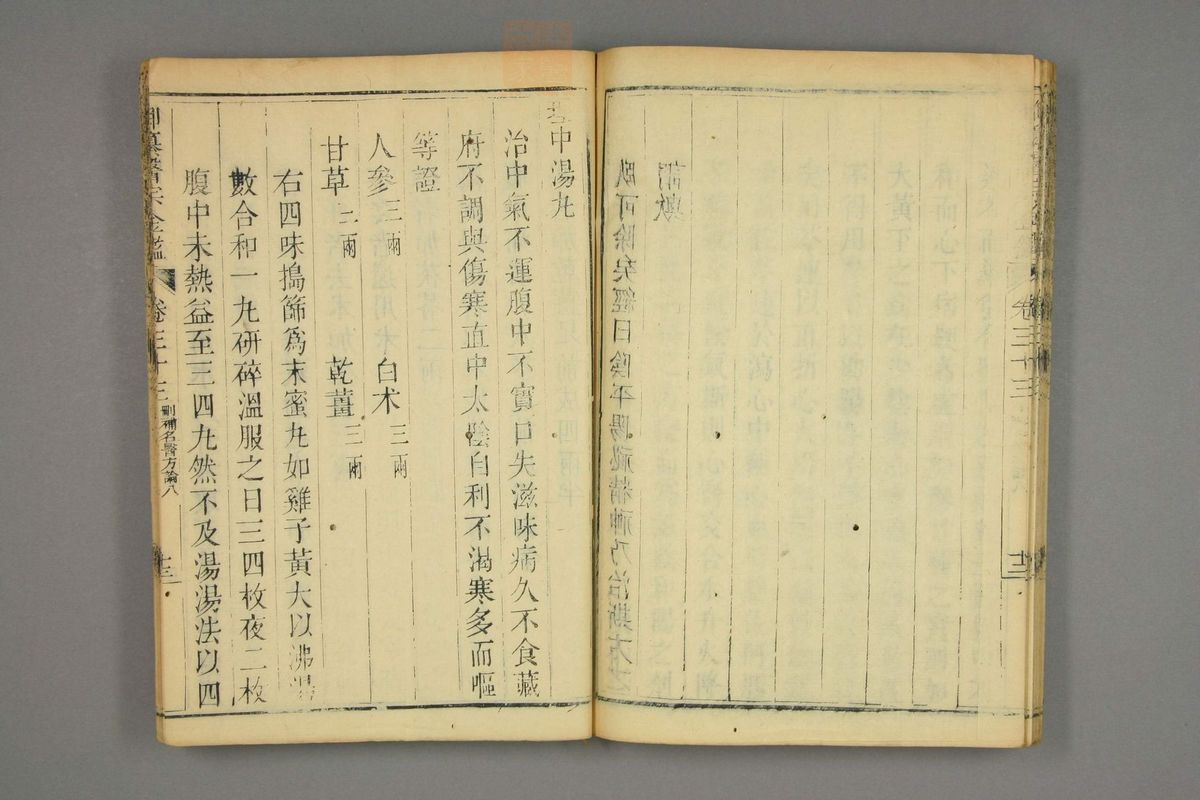 卷三十三
十二
臥可除矣經曰陰平陽祕精神乃治斯方之
謂歟
理中湯丸
治中氣不運腹中不實口失滋味病久不食藏
府不調與傷寒直中太陰自利不渴寒多而嘔
等證
人參三兩 白朮三兩
甘草二兩 乾薑三兩
右四味搗篩爲末蜜丸如雞子黃大以沸湯
數合和一丸研碎溫服之日三四枚夜二枚
腹中未熱益至三四丸然不及湯湯法以四
御纂醫宗金鑑 卷三十三 刪補名醫方論八 十三